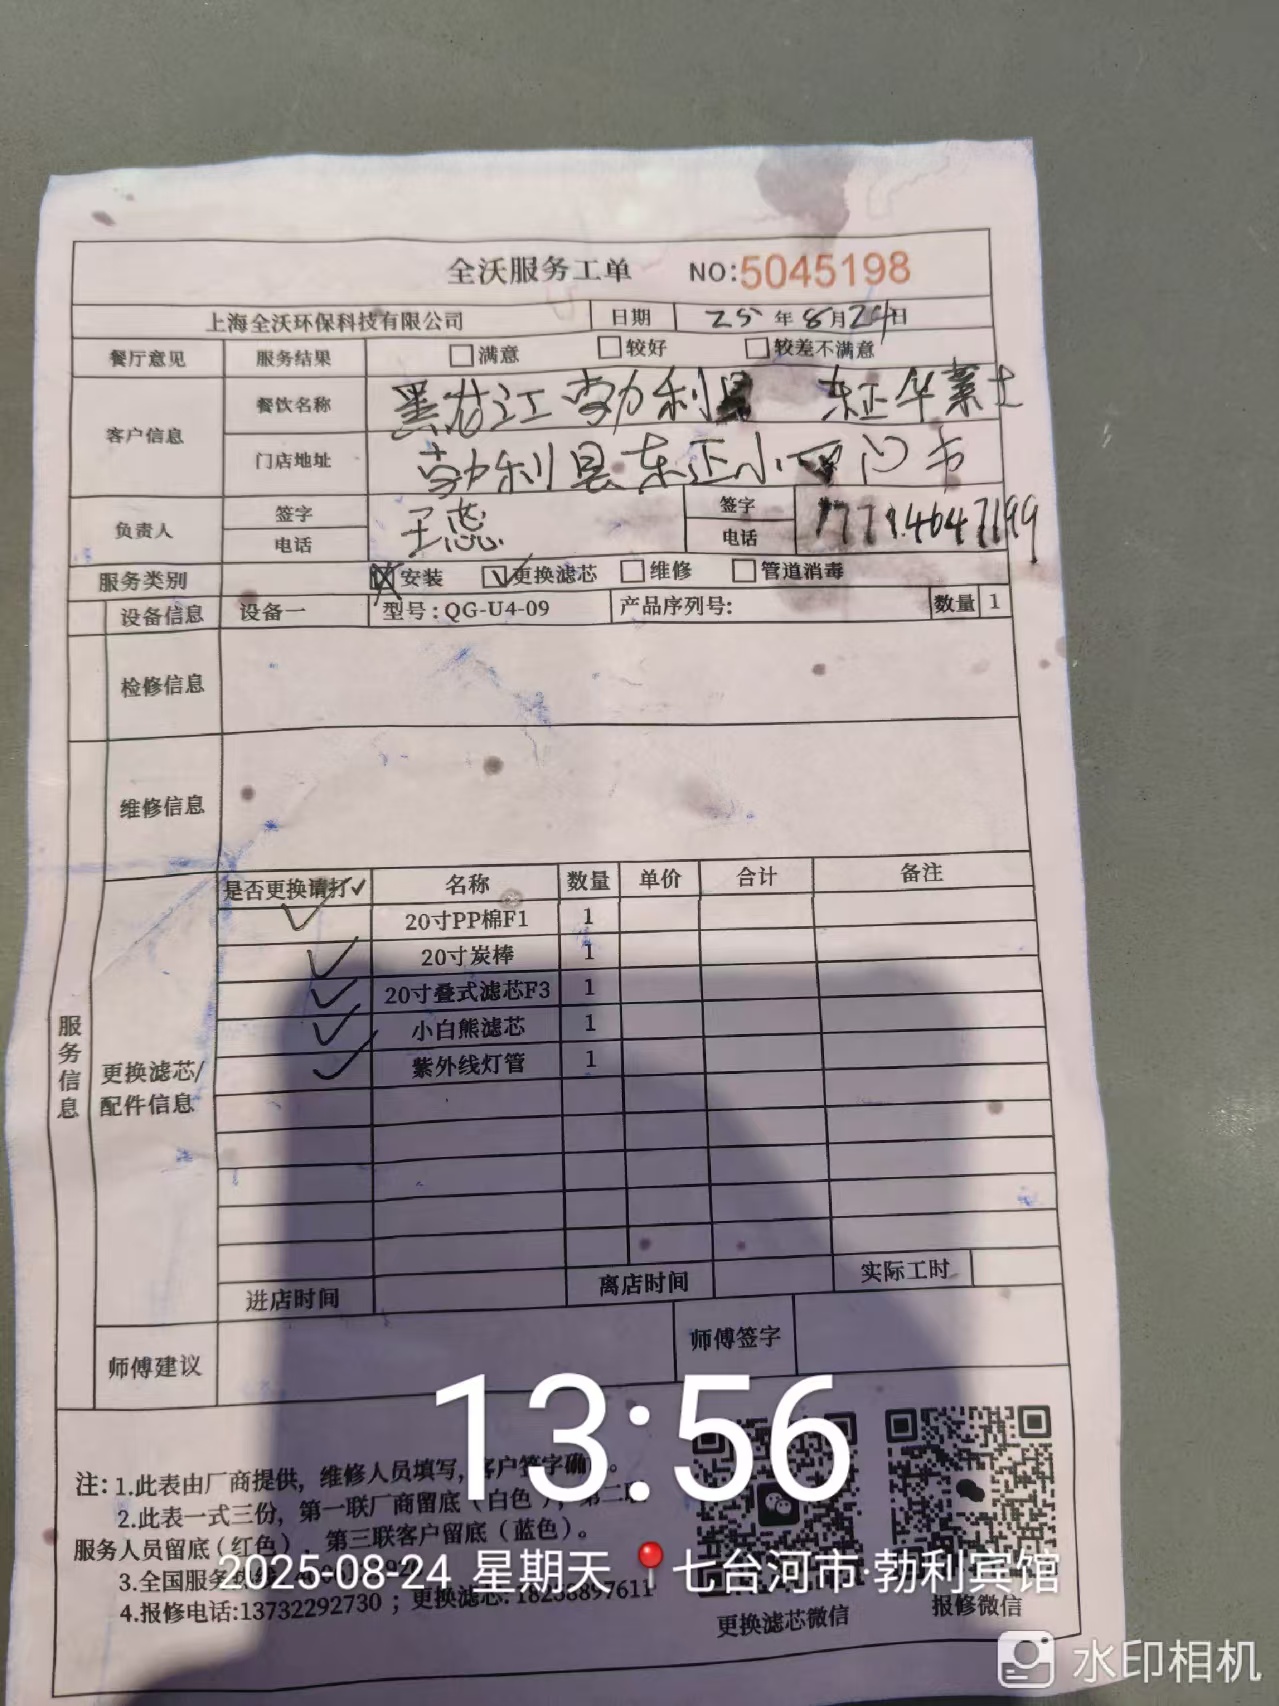 全沃服务工单 NO:5045198
上海全沃环保科技有限公司 日期 25年8月24日
餐厅意见 服务结果 满意 较好 较差不满意
客户信息 餐饮名称 黑龙江勃利县 东正华莱士
门店地址 勃利县东正小区门市
负责人 签字 王蕊 签字
电话 电话
服务类别 安装 更换滤芯 维修 管道消毒
设备信息 设备一 型号:QG-U4-09 产品序列号: 数量 1
检修信息
维修信息
服务信息
更换滤芯/
配件信息
是否更换请打✓ 名称 数量 单价 合计 备注
✓ 20寸PP棉F1 1
✓ 20寸炭棒 1
✓ 20寸叠式滤芯F3 1
✓ 小白熊滤芯 1
✓ 紫外线灯管 1
进店时间 离店时间 实际工时
师傅建议 师傅签字
13:56
注:1.此表由厂商提供，维修人员填写，客户签字确
2.此表一式三份，第一联厂商留底（白色），第二联
服务人员留底（红色）、第三联客户留底（蓝色）。
2025-08-24 星期天 七台河市·勃利宾馆
3.全国服务热线
4.报修电话:13732292730；更换滤芯:18258897611
更换滤芯微信 报修微信
水印相机